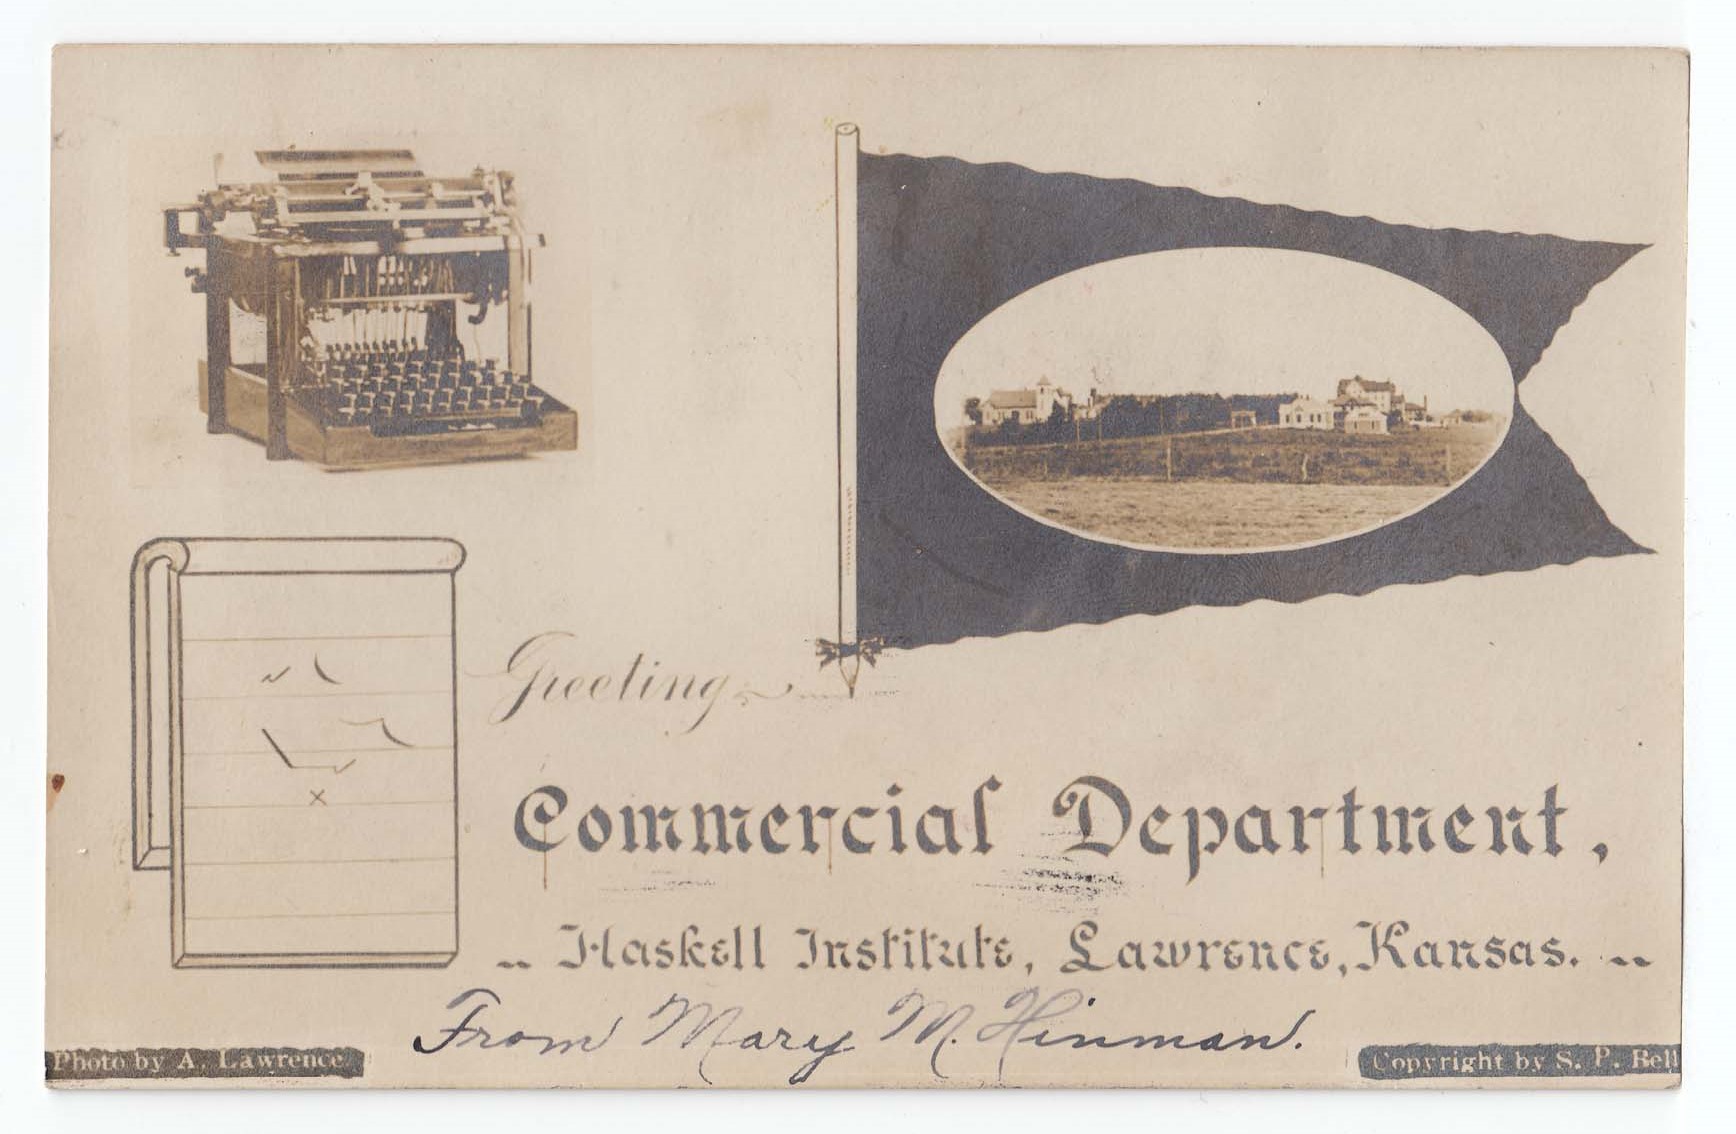 Greeting
Commercial Department,
Haskell Institute, Lawrence, Kansas.
From Mary M. Hinman.
Photo by A. Lawrence
Copyright by S. P. Bell